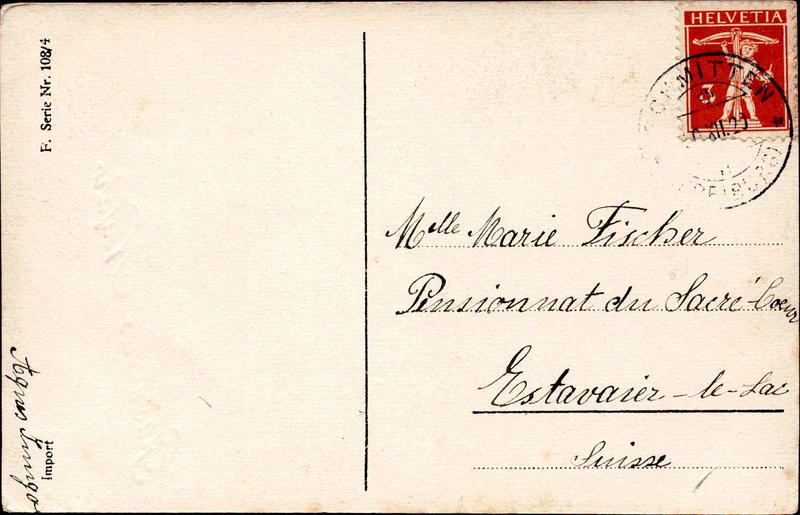 F. Serie Nr. 108/4
Import
HELVETIA
3
SCHMITTEN
XII.20
(FREIBURG)
Mlle Marie Fischer
Pensionnat du Sacré-Coeur
Estavaier-le-Lac
Suisse